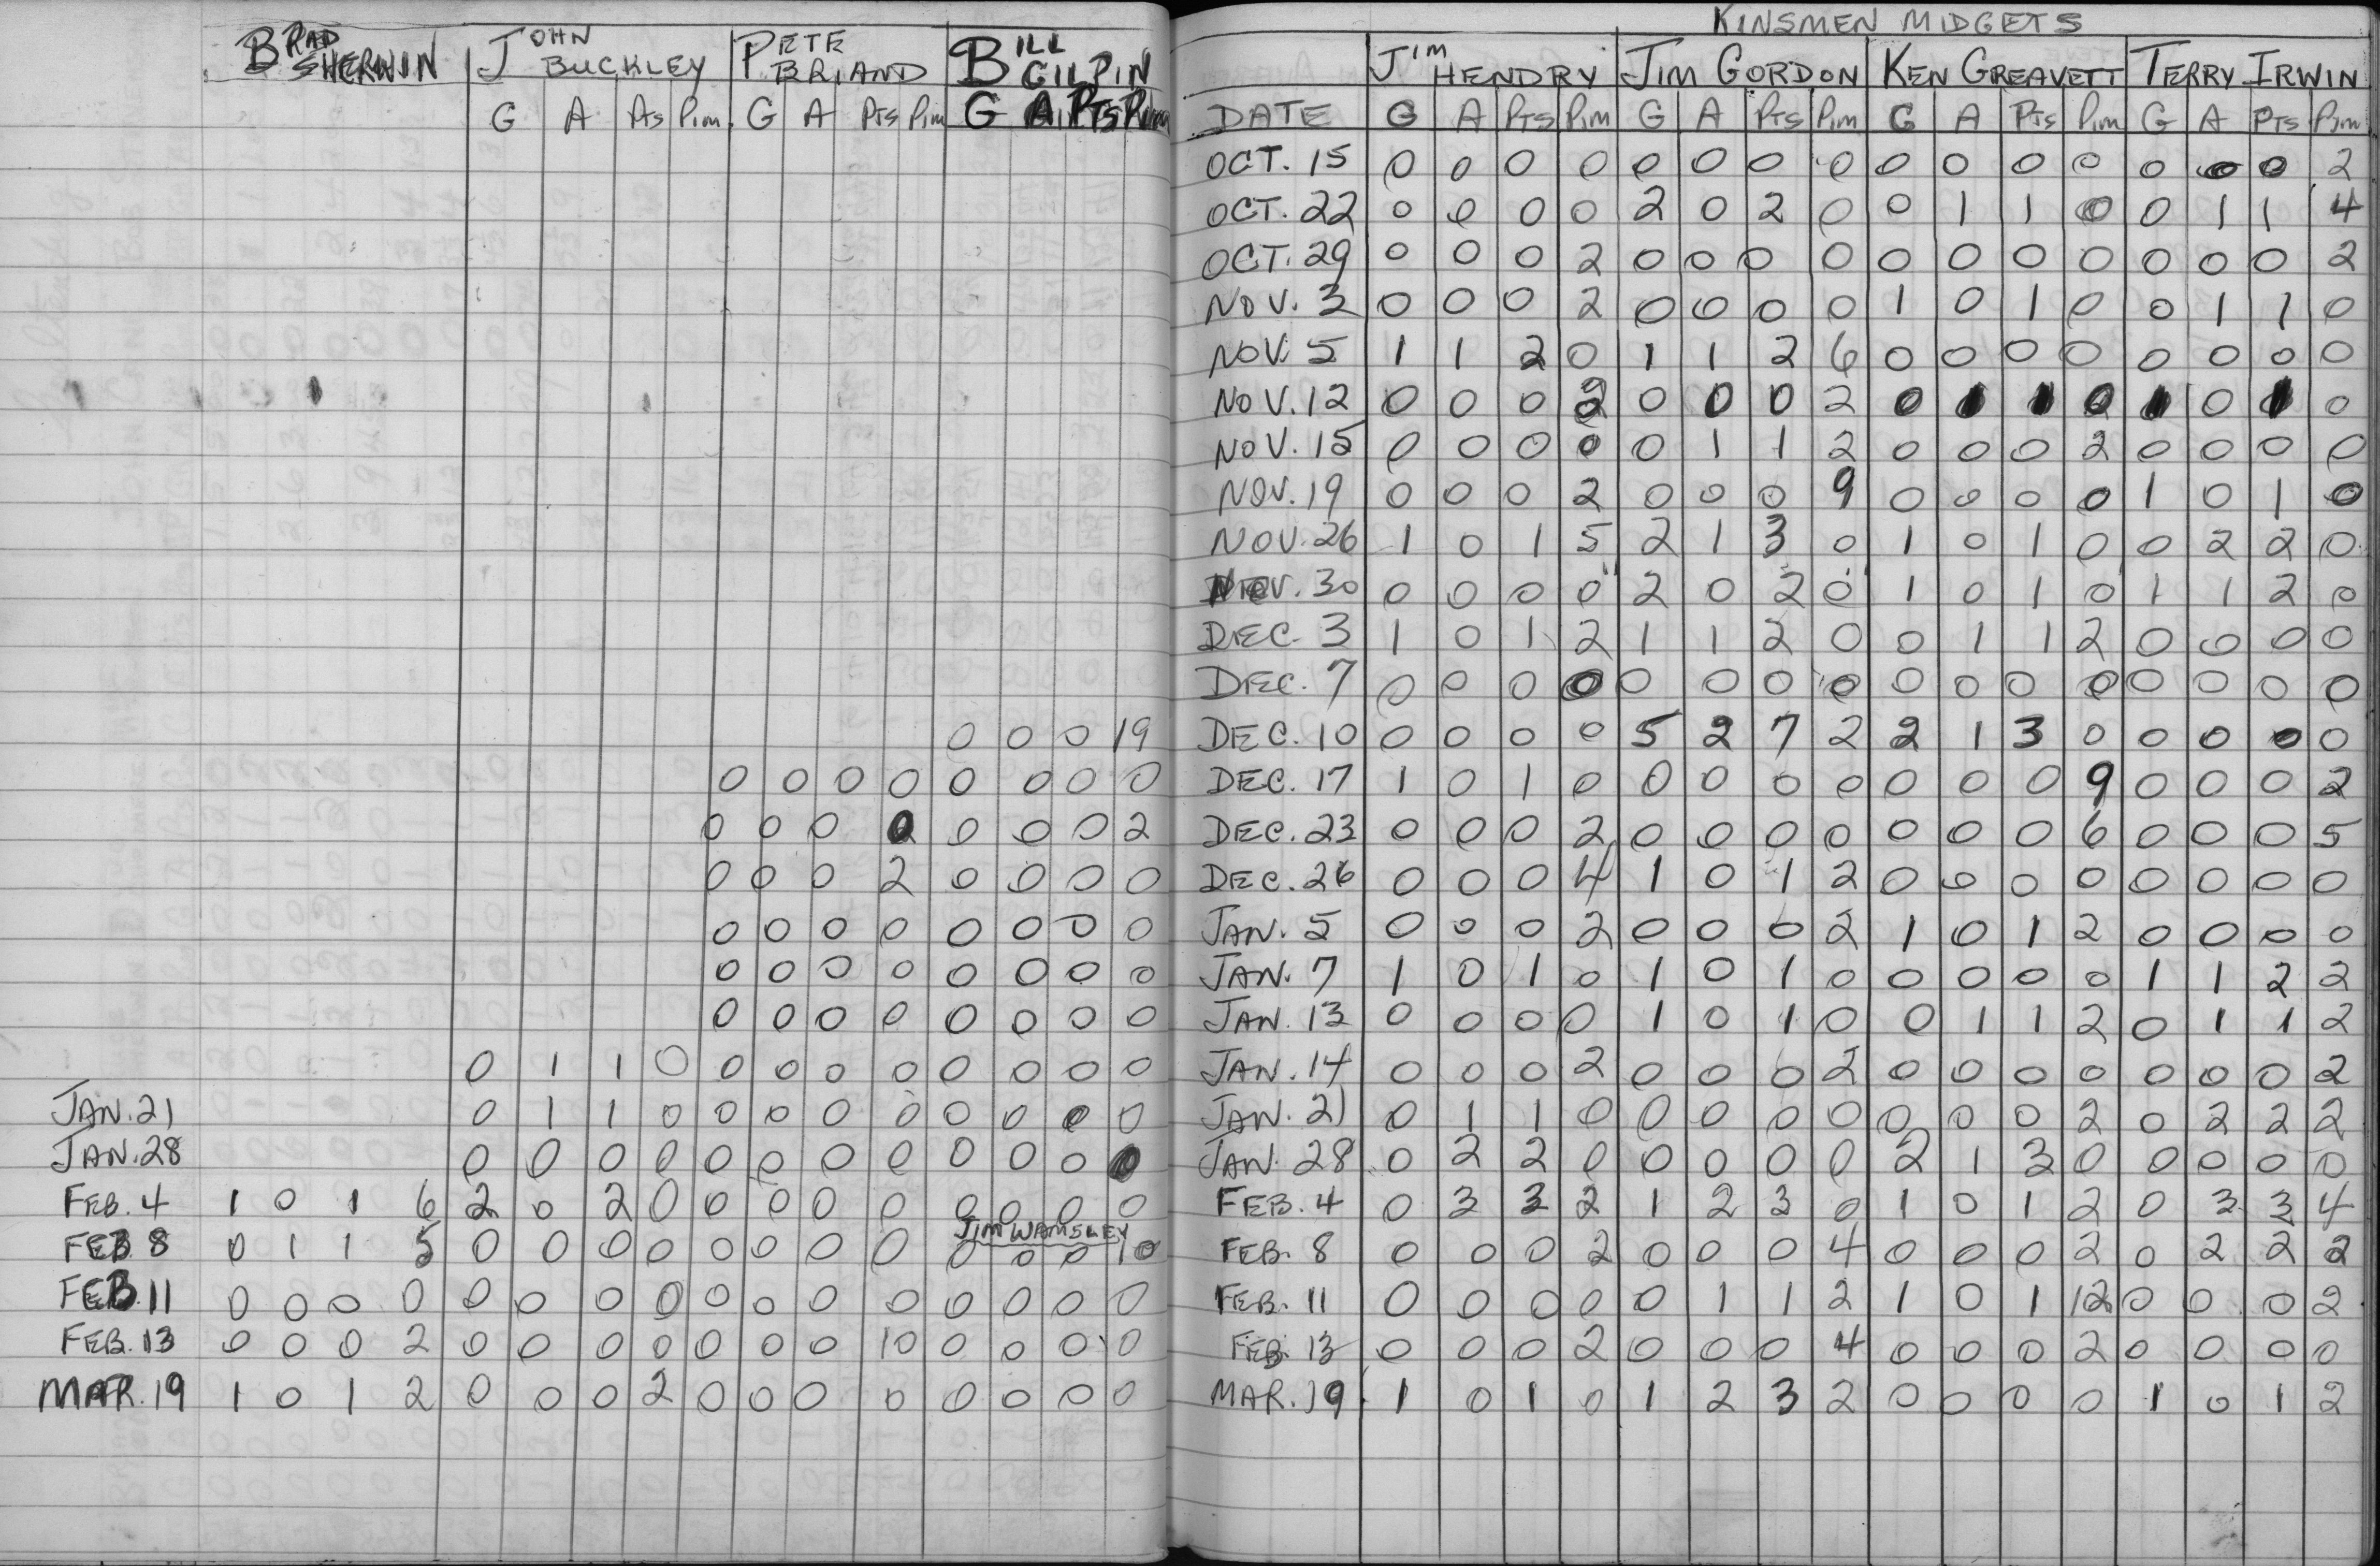 BRAD SHERWIN JOHN BUCKLEY PETE BRIAND BILL GILPIN
G A Pts Pim G A Pts Pim G A PTS Pim
0 0 0 19
0 0 0 0 0 0 0 0
0 0 0 0 0 0 0 2
0 0 0 2 0 0 0 0
0 0 0 0 0 0 0 0
0 0 0 0 0 0 0 0
0 0 0 0 0 0 0 0
0 1 1 0 0 0 0 0 0 0 0 0
JAN. 21 0 1 1 0 0 0 0 0 0 0 0 0
JAN. 28 0 0 0 0 0 0 0 0 0 0 0 0
FEB. 4 1 0 1 6 2 0 2 0 0 0 0 0 0 0 0 0
JIM WAMSLEY
FEB 8 0 1 1 5 0 0 0 0 0 0 0 0 0 0 0 10
FEB. 11 0 0 0 0 0 0 0 0 0 0 0 0 0 0 0 0
FEB. 13 0 0 0 2 0 0 0 0 0 0 0 10 0 0 0 0
MAR. 19 1 0 1 2 0 0 0 2 0 0 0 0 0 0 0 0
KINSMEN MIDGETS
JIM HENDRY JIM GORDON KEN GREAVETT TERRY IRWIN
DATE G A PTS Pim G A Pts Pim G A Pts Pim G A PTS Pim
OCT. 15 0 0 0 0 0 0 0 0 0 0 0 0 0 0 0 2
OCT. 22 0 0 0 0 2 0 2 0 0 1 1 0 0 1 1 4
OCT. 29 0 0 0 2 0 0 0 0 0 0 0 0 0 0 0 2
NOV. 3 0 0 0 2 0 0 0 0 1 0 1 0 0 1 1 0
NOV. 5 1 1 2 0 1 1 2 6 0 0 0 0 0 0 0 0
NOV. 12 0 0 0 2 0 0 0 2 0 1 1 0 1 0 1 0
NOV. 15 0 0 0 0 0 1 1 2 0 0 0 2 0 0 0 0
NOV. 19 0 0 0 2 0 0 0 9 0 0 0 0 1 0 1 0
NOV. 26 1 0 1 5 2 1 3 0 1 0 1 0 0 2 2 0
NOV. 30 0 0 0 0 2 0 2 0 1 0 1 0 1 1 2 0
DEC. 3 1 0 1 2 1 1 2 0 0 1 1 2 0 0 0 0
DEC. 7 0 0 0 0 0 0 0 0 0 0 0 0 0 0 0 0
DEC. 10 0 0 0 0 5 2 7 2 2 1 3 0 0 0 0 0
DEC. 17 1 0 1 0 0 0 0 0 0 0 0 9 0 0 0 2
DEC. 23 0 0 0 2 0 0 0 0 0 0 0 6 0 0 0 5
DEC. 26 0 0 0 4 1 0 1 2 0 0 0 0 0 0 0 0
JAN. 5 0 0 0 2 0 0 0 2 1 0 1 2 0 0 0 0
JAN. 7 1 0 1 0 1 0 1 0 0 0 0 0 1 1 2 2
JAN. 13 0 0 0 0 1 0 1 0 0 1 1 2 0 1 1 2
JAN. 14 0 0 0 2 0 0 0 2 0 0 0 0 0 0 0 2
JAN. 21 0 1 1 0 0 0 0 0 0 0 0 2 0 2 2 2
JAN. 28 0 2 2 0 0 0 0 0 2 1 3 0 0 0 0 0
FEB. 4 0 3 3 2 1 2 3 0 1 0 1 2 0 3 3 4
FEB. 8 0 0 0 2 0 0 0 4 0 0 0 2 0 2 2 2
FEB. 11 0 0 0 0 0 1 1 2 1 0 1 12 0 0 0 2
FEB. 13 0 0 0 2 0 0 0 4 0 0 0 2 0 0 0 0
MAR. 19 1 0 1 0 1 2 3 2 0 0 0 0 1 0 1 2